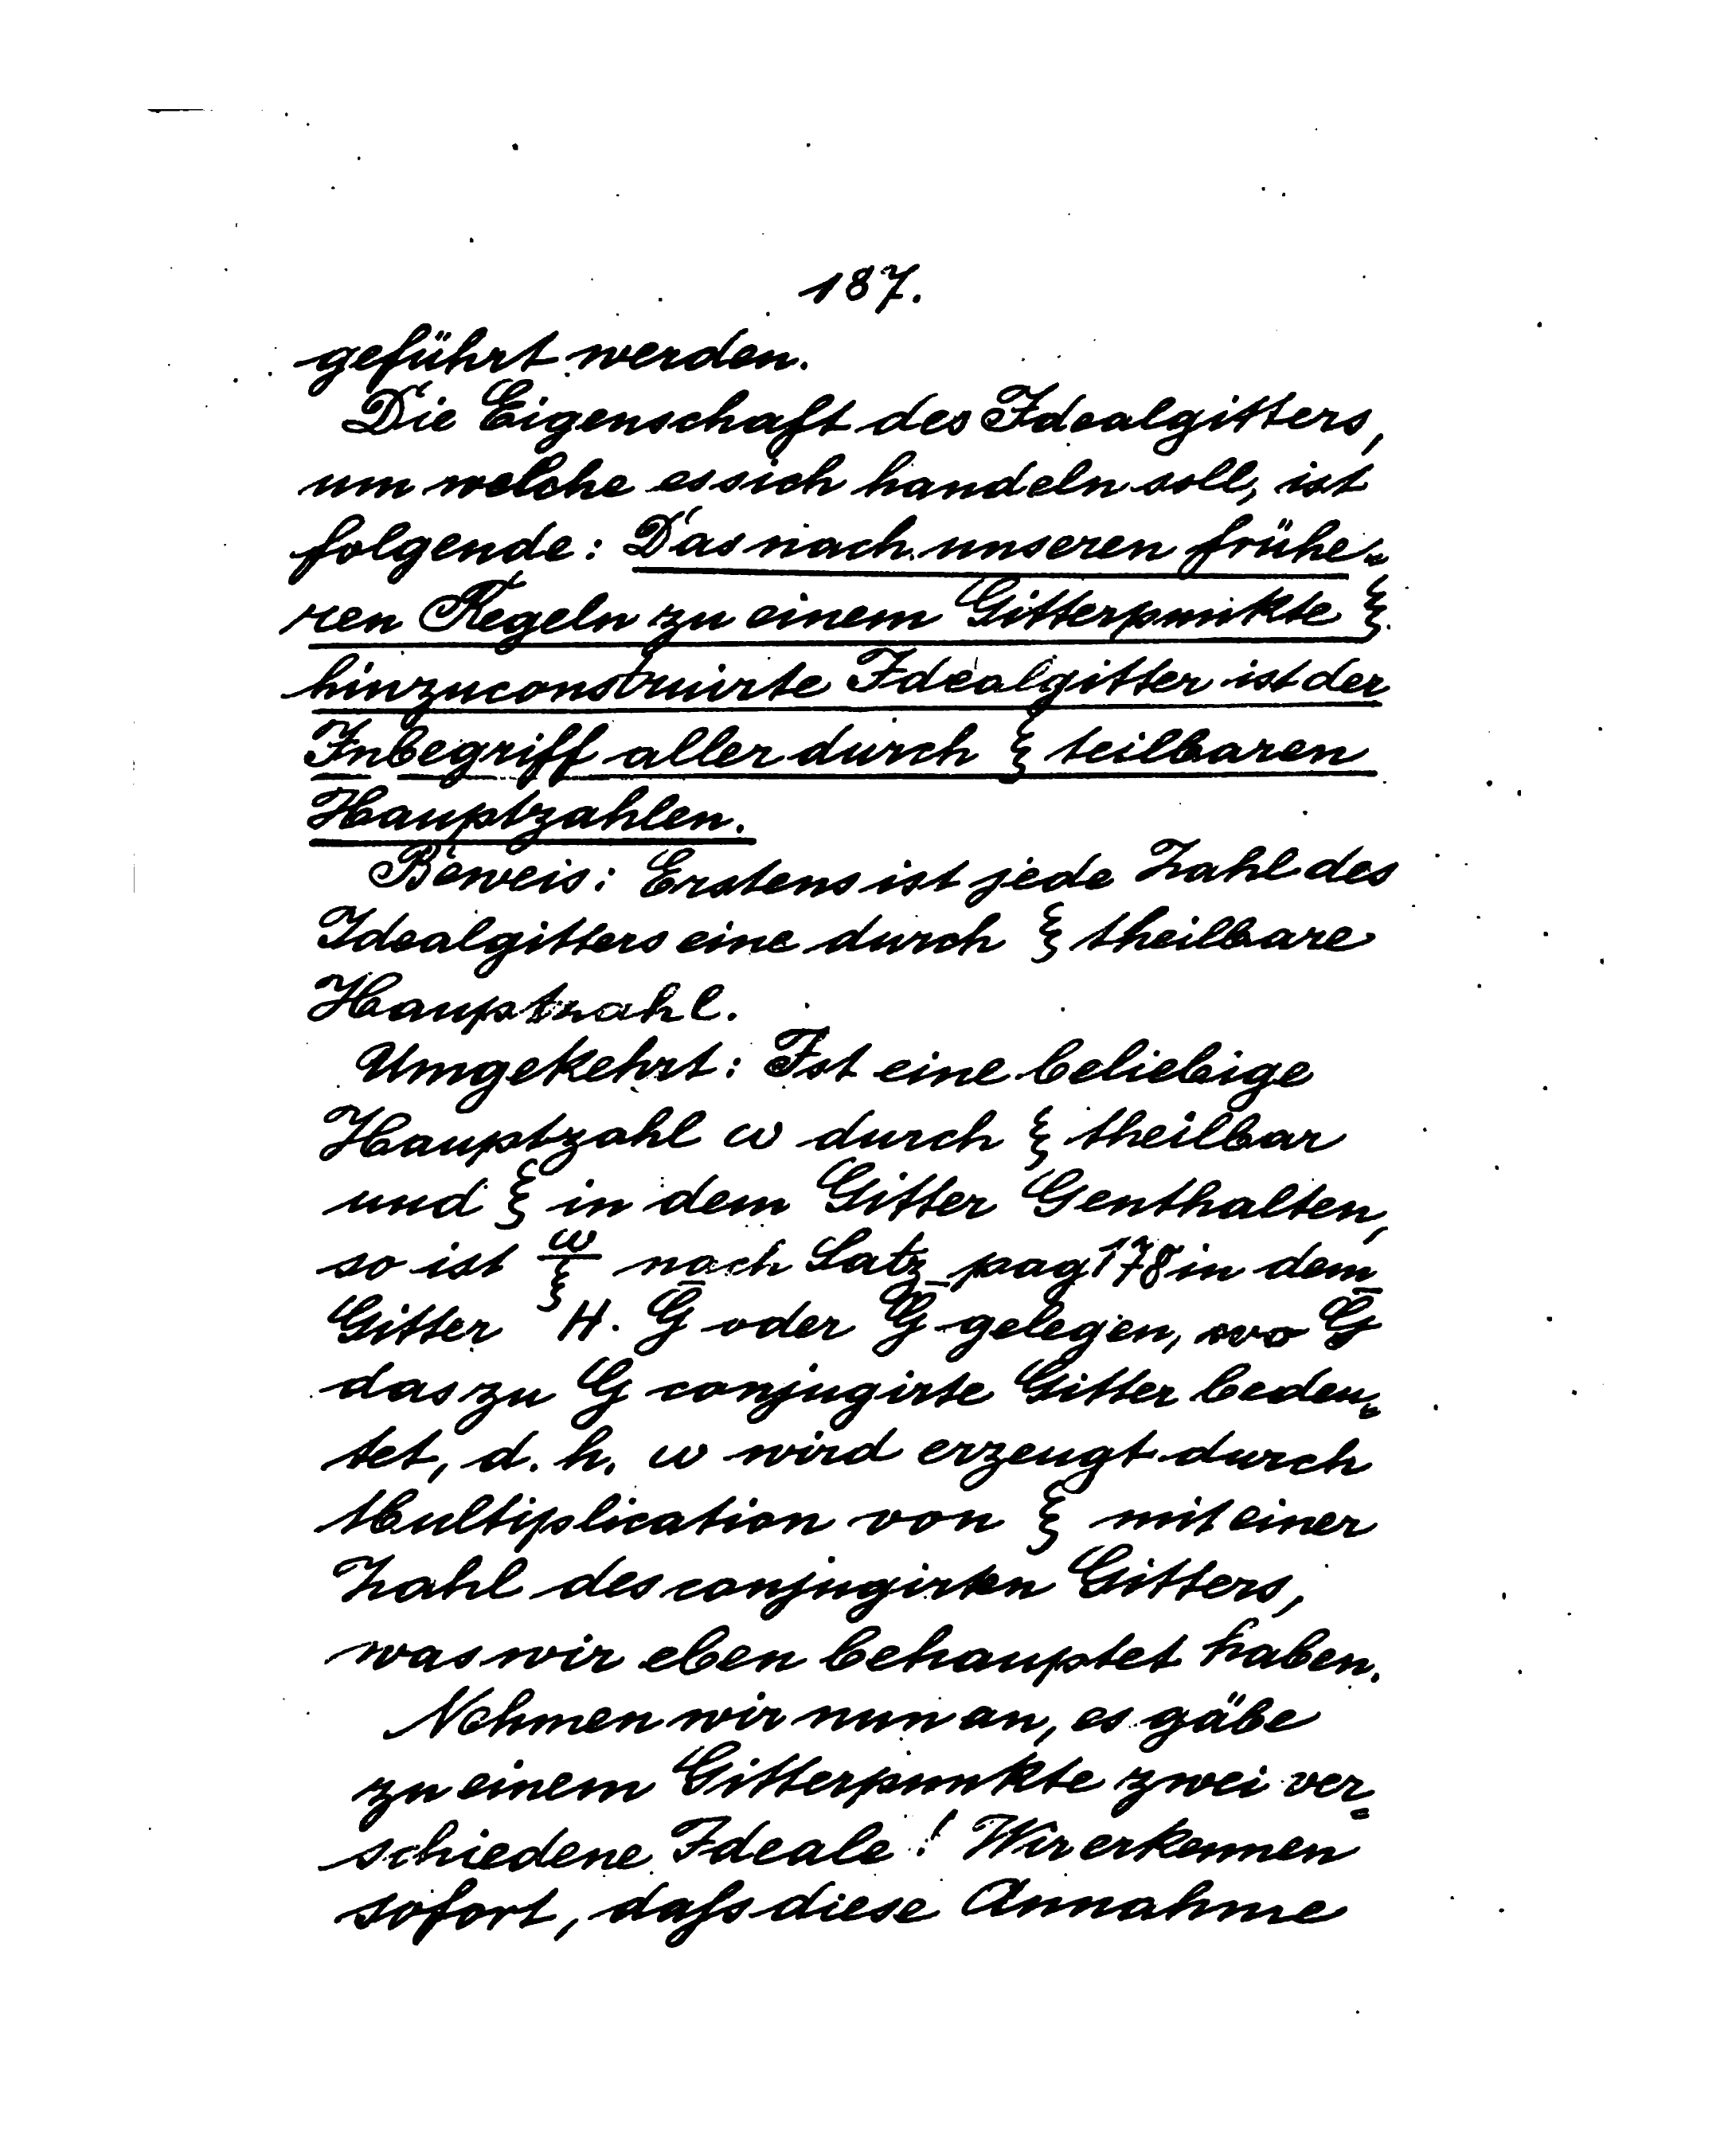 187.
geführt werden.
Die Eigenschaft des Idealgitters,
um welche es sich handeln soll, ist
folgende: Das nach unseren frühe-
ren Regeln zu einem Gitterpunkte ξ
hinzuconstruirte Idealgitter ist der
Inbegriff aller durch ξ teilbaren
Hauptzahlen.
Beweis: Erstens ist jede Zahl des
Idealgitters eine durch ξ theilbare
Hauptzahl.
Umgekehrt: Ist eine beliebige
Hauptzahl ω durch ξ theilbar
und ξ in dem Gitter G enthalten,
so ist ω/ξ nach Satz pag 178 in dem
Gitter H. Ḡ oder Ḡ gelegen, wo Ḡ
das zu G conjugirte Gitter bedeu-
tet, d. h. ω wird erzeugt durch
Multiplication von ξ mit einer
Zahl des conjugirten Gitters,
was wir eben behauptet haben.
Nehmen wir nun an, es gäbe
zu einem Gitterpunkte zwei ver-
schiedene Ideale! Wir erkennen
sofort, dafs diese Annahme